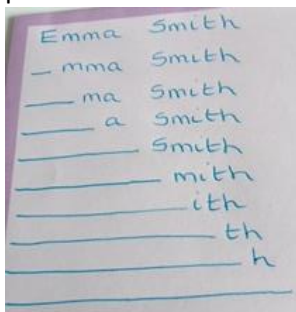 Emma Smith
_ mma Smith
___ ma Smith
_____ a Smith
________ Smith
__________ mith
____________ ith
______________ th
________________ h
____________________